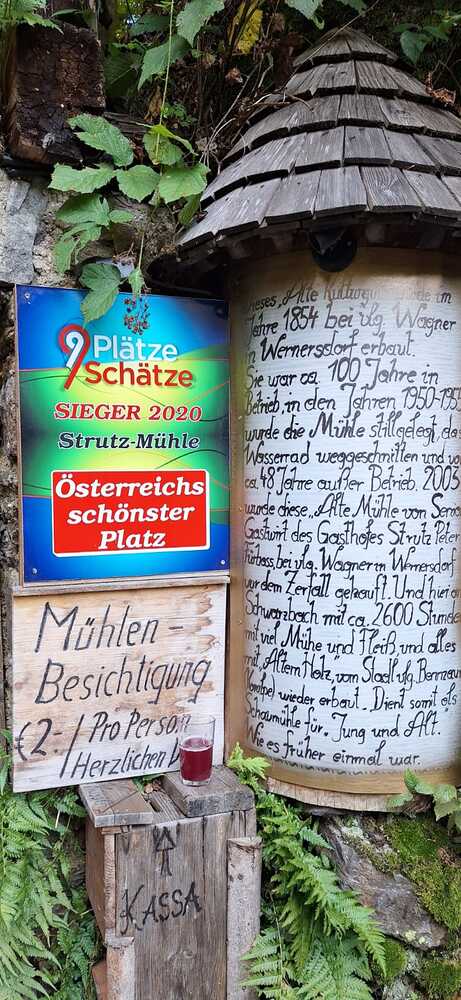 9 Plätze
9 Schätze
SIEGER 2020
Strutz-Mühle
Österreichs
schönster
Platz
Mühlen-
Besichtigung
€2.-/Pro Person
/Herzlichen
KASSA
"Alte im
Jahre 1854 bei vlg. Wagner
in Wernersdorf erbaut.
Sie war ca. 100 Jahre in
Betrieb, in den Jahren 1950-195
wurde die Mühle stillgelegt, da
Wasserrad weggeschnitten und
ca. 48 Jahre außer Betrieb. 2003
wurde diese "Alte Mühle von
Gastwirt des Gasthofes Strutz Peter
bei vlg. Wagner in Wernersdorf
vor dem Zerfall gekauft. Und hier
Schwarzbach mit ca. 2600 Stunde
mit viel Mühe und Fleiß, und alles
mit "Altem Holz", vom Stadl vlg.
wieder erbaut. Dient somit als
Schaumühle für "Jung und Alt".
Wie es früher einmal war.